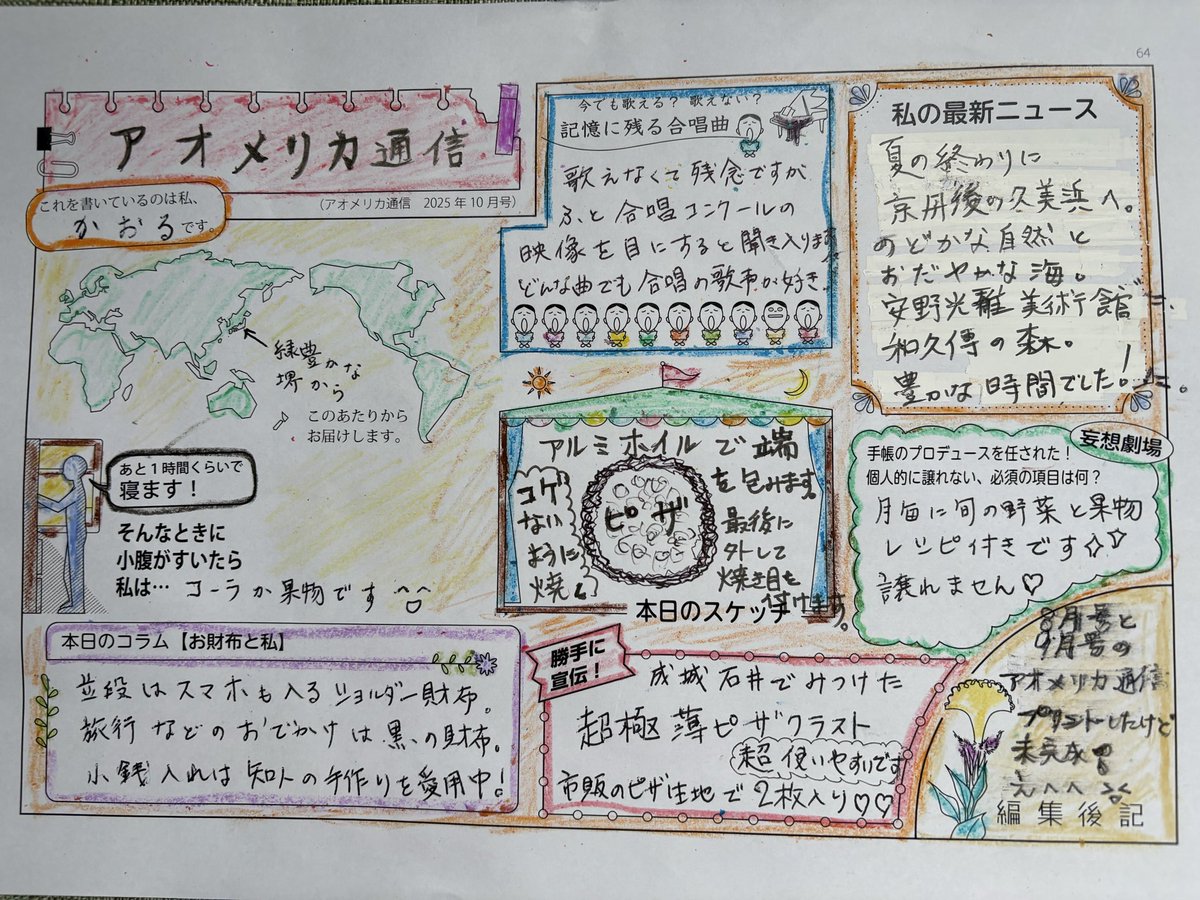 64
アオメリカ通信
(アオメリカ通信 2025年10月号)
これを書いているのは私、
かおるです。
緑豊かな
堺から
このあたりから
お届けします。
今でも歌える？ 歌えない？
記憶に残る合唱曲
歌えなくて残念ですが
ふと合唱コンクールの
映像を目にすると聞き入ります
どんな曲でも合唱の歌声が好き.
私の最新ニュース
夏の終わりに
京丹後の久美浜へ。
のどかな自然と
おだやかな海。
安野光雅美術館
和久傳の森。
豊かな時間でした！
あと1時間くらいで
寝ます！
そんなときに
小腹がすいたら
私は…
コーラか果物です
アルミホイルで端
を包みます。
コゲ
ない
ように
焼く
ピザ
最後に
外して
焼き目を
付けます。
本日のスケッチ
妄想劇場
手帳のプロデュースを任された！
個人的に譲れない、必須の項目は何？
月毎に旬の野菜と果物
レシピ付きです☆☆
譲れません♡
本日のコラム【お財布と私】
普段はスマホも入るショルダー財布。
旅行などのおでかけは黒の財布。
小銭入れは知人の手作りを愛用中！
勝手に
宣伝！
成城石井でみつけた
超極薄ピザクラスト
超使いやすいです
市販のピザ生地で2枚入り♡♡
8月号と
9月号の
アオメリカ通信
プリントしたけど
未完成
えへへ
編集後記